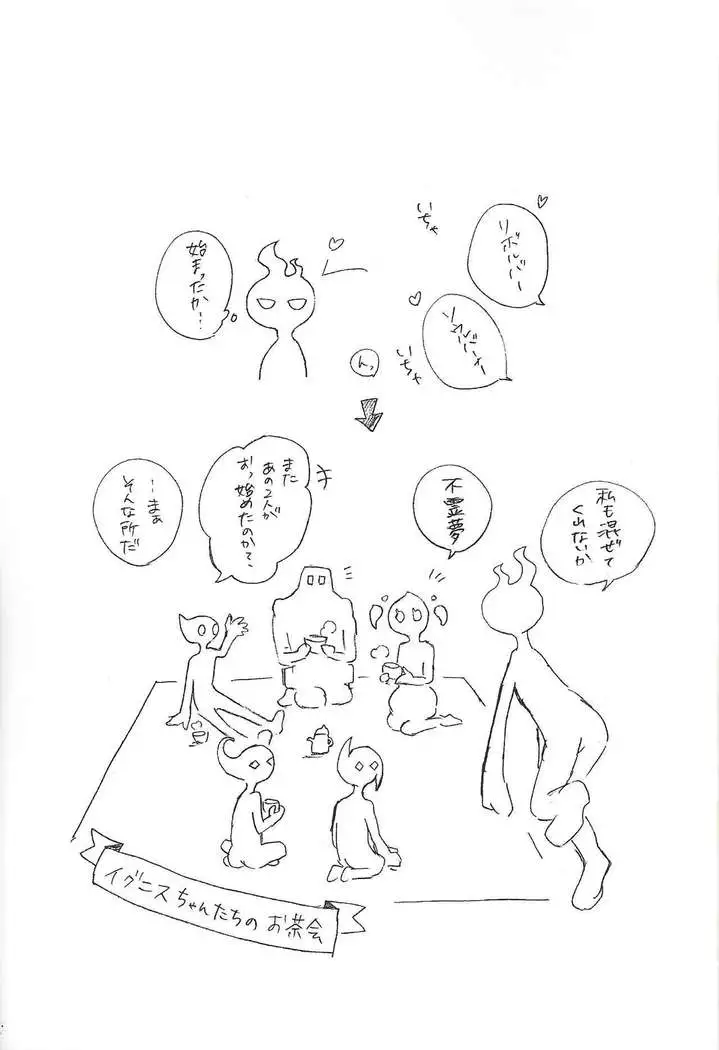 リボルバー
いちゃ
ソウルバーナー
いちゃ
んっ
始まったか…
私も混ぜて
くれないか
不霊夢
また
あの2人が
おっ始めたのか?
…まぁ
そんな所だ
イグニスちゃんたちのお茶会